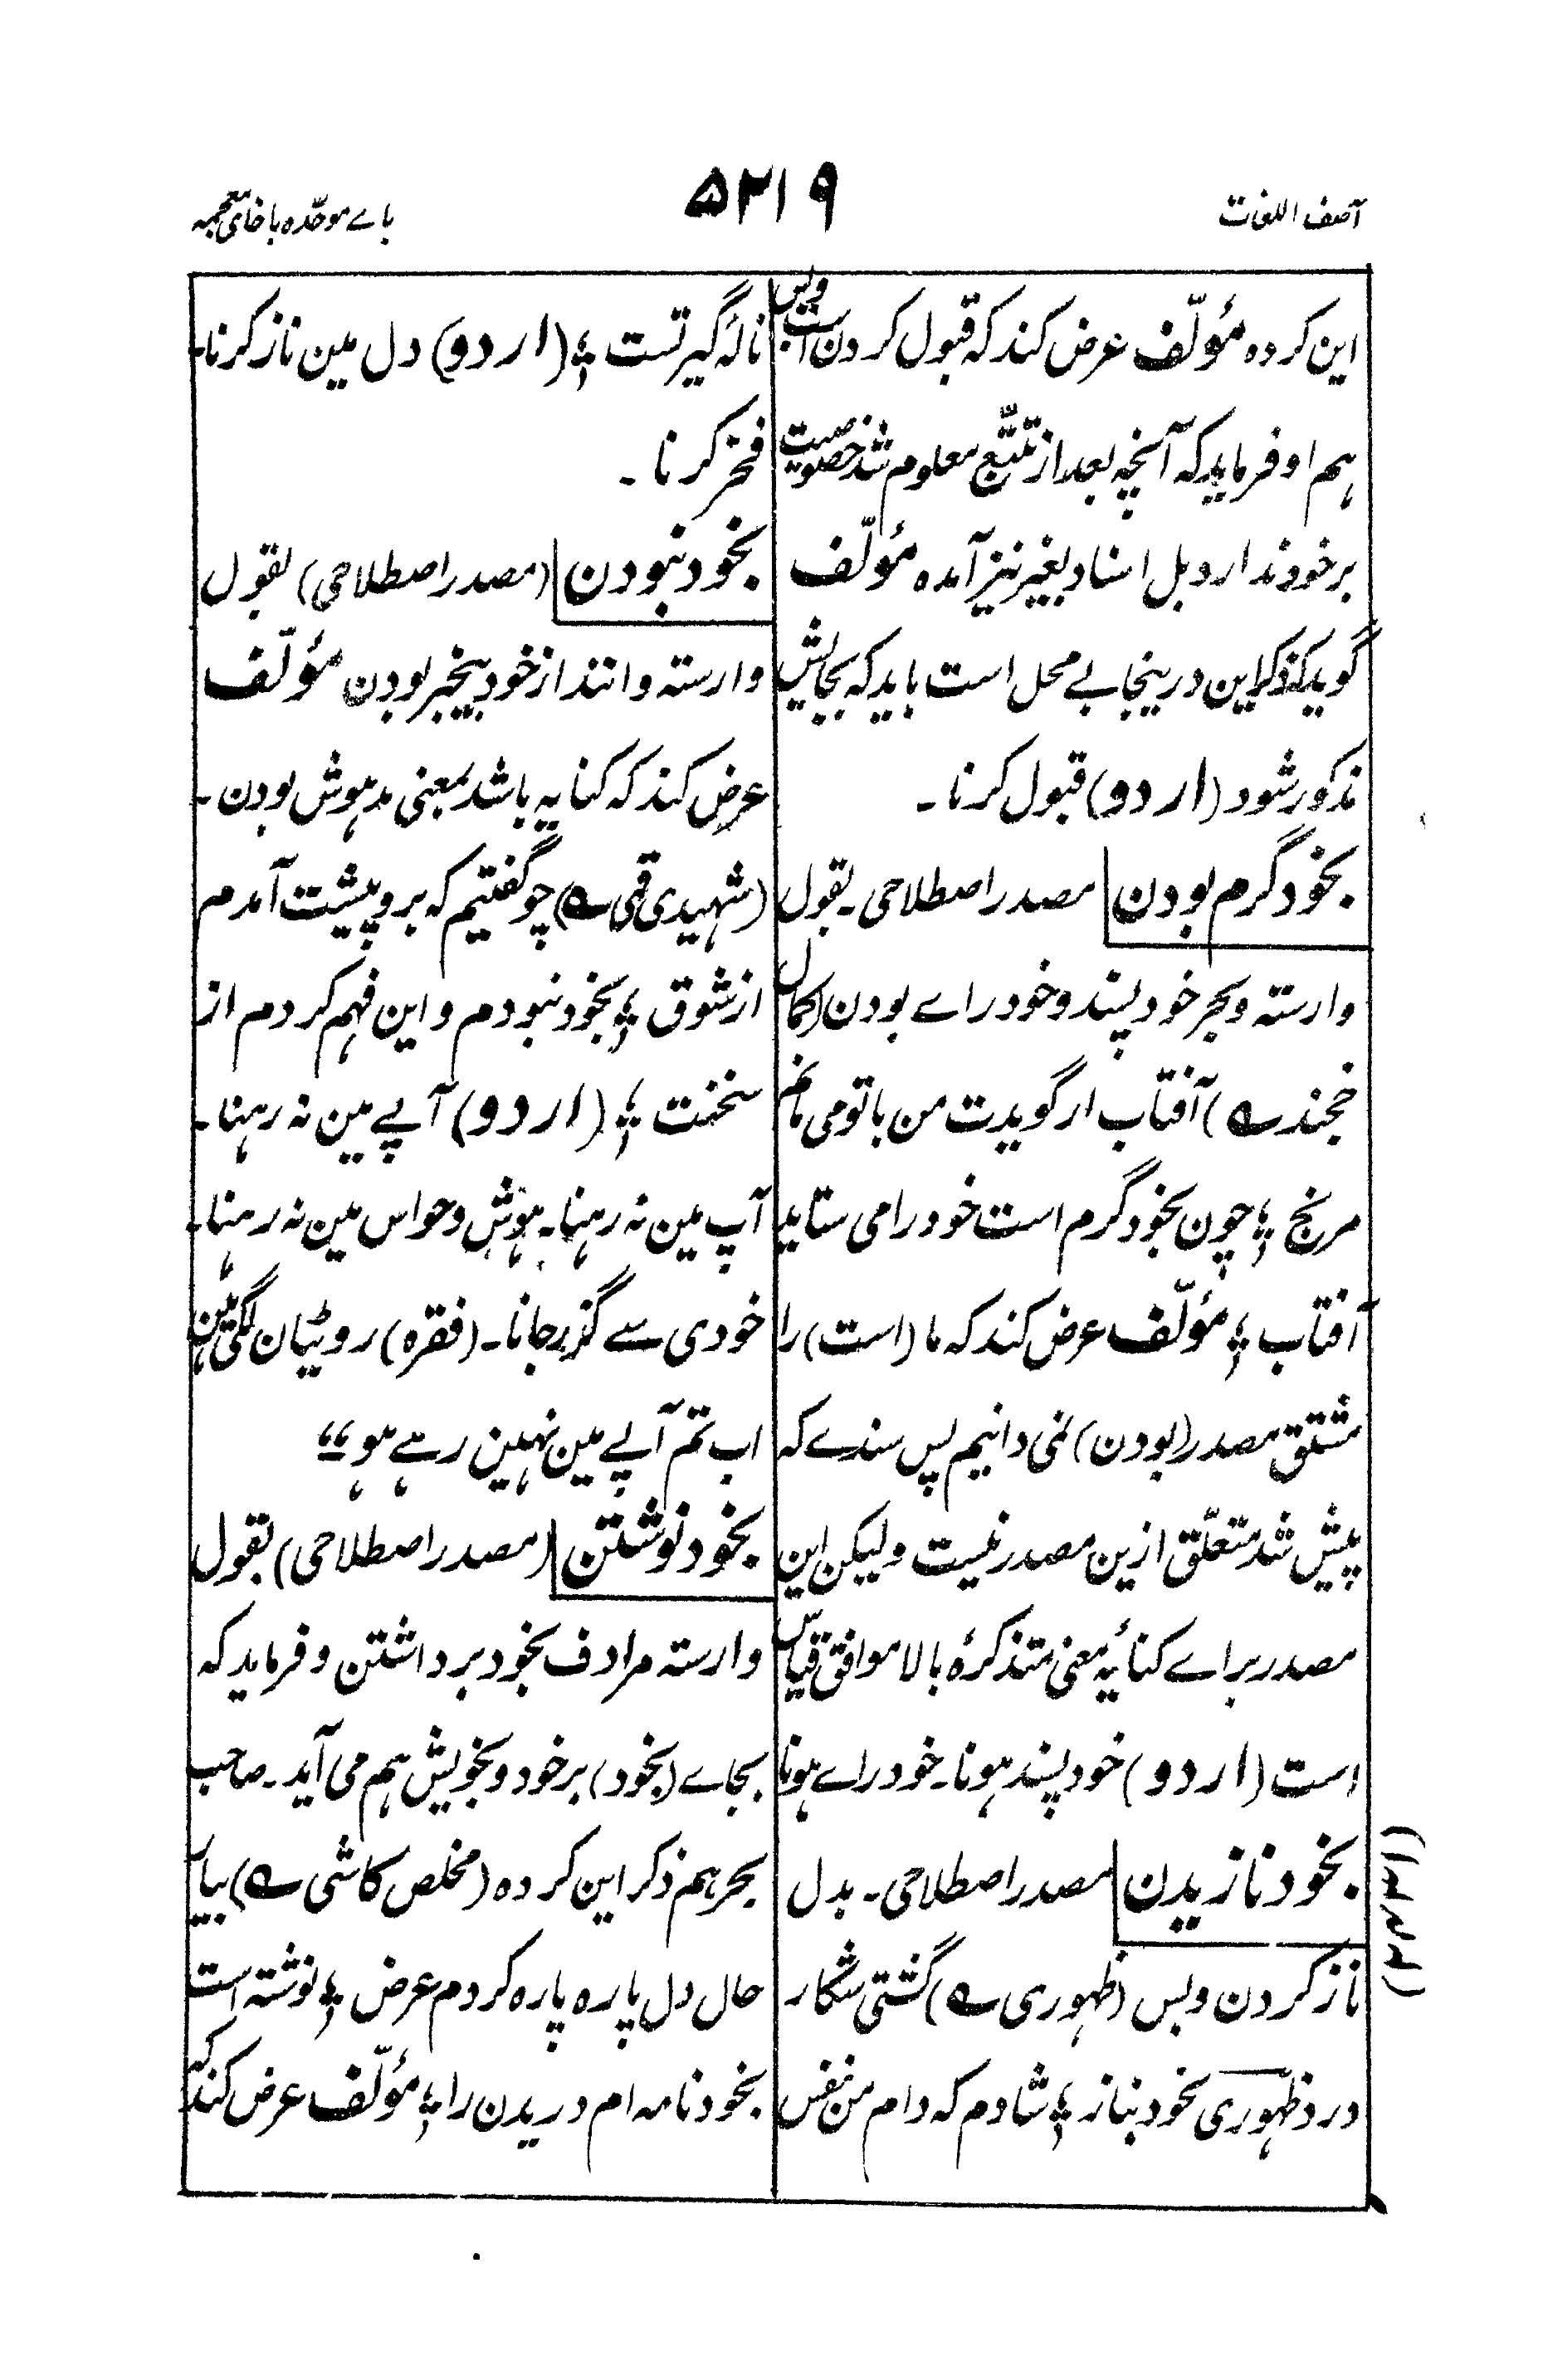 آصف اللغات
۵۲۱۹
باے موحّدہ باخاے معجمہ
این کردہ مؤلّف عرض کند کہ قبول کردن است وبس
ہم او فرماید کہ آنچہ بعد از تتبّع معلوم شد خصوصیت
برخود ندارد بل اسناد بغیر نیز آمدہ مؤلّف
گوید کہ ذکر این درینجا بے محل است باید کہ بجایش
مذکور شود (اردو) قبول کرنا۔
بخود گرم بودن مصدر اصطلاحی۔ بقول
وارستہ و بحر خود پسند و خود راے بودن (کمال
خجند ؎) آفتاب ار گویدت من با تو می مانم
مرنج ؛ چون بخود گرم است خود را می ستاید
آفتاب ؛ مؤلّف عرض کند کہ ما (است) را
مشتق مصدر (بودن) نمی دانیم پس سندے کہ
پیش شد متعلّق ازین مصدر نیست ولیکن این
مصدر براے کنایۂ معنی متذکرۂ بالا موافق قیاس
است (اردو) خود پسند ہونا۔ خود راے ہونا
بخود نازیدن مصدر اصطلاحی۔ بدل
ناز کردن وبس (ظہوری ؎) گشتی شکار
درد ظہّوری بخود بناز ؛ شادم کہ دام من نفس
(۱۳۴۲)
نالہ گیر تست ؛ (اردو) دل مین ناز کرنا۔
فخر کرنا۔
بخود نبودن (مصدر اصطلاحی) بقول
وارستہ و انند از خود بیخبر بودن مؤلّف
عرض کند کہ کنایہ باشد بمعنی مدہوش بودن۔
(شہیدی قمی ؎) چو گفتیم کہ برو پیشت آمدم
از شوق ؛ بخود نبودم و این فہم کردم از
سخنت ؛ (اردو) آپے مین نہ رہنا۔
آپ مین نہ رہنا۔ ہوش و حواس مین نہ رہنا۔
خودی سے گزر جانا۔ (فقرہ) روٹیان لگی ہین
اب تم آپے مین نہین رہے ہو ؛؛
بخود نوشتن (مصدر اصطلاحی) بقول
وارستہ مرادف بخود برداشتن و فرماید کہ
بجاے (بخود) برخود و بخویش ہم می آید۔ صاحب
بحر ہم ذکر این کردہ (مخلص کاشی ؎) بیان
حال دل پارہ پارہ کردم عرض ؛ نوشتہ است
بخود نامہ ام دریدن را ؛ مؤلّف عرض کند کہ